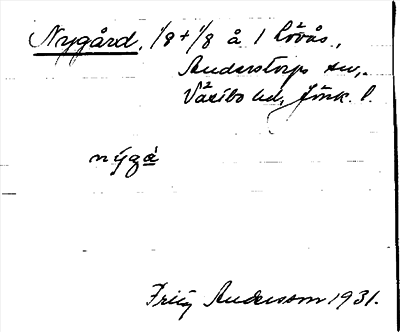 Nygård, 1/8 + 1/8 å 1 Lövås,
Anderstorps sn,
Västbo hd, Jönk. l.
nýgà
Fritz Andersson 1931.